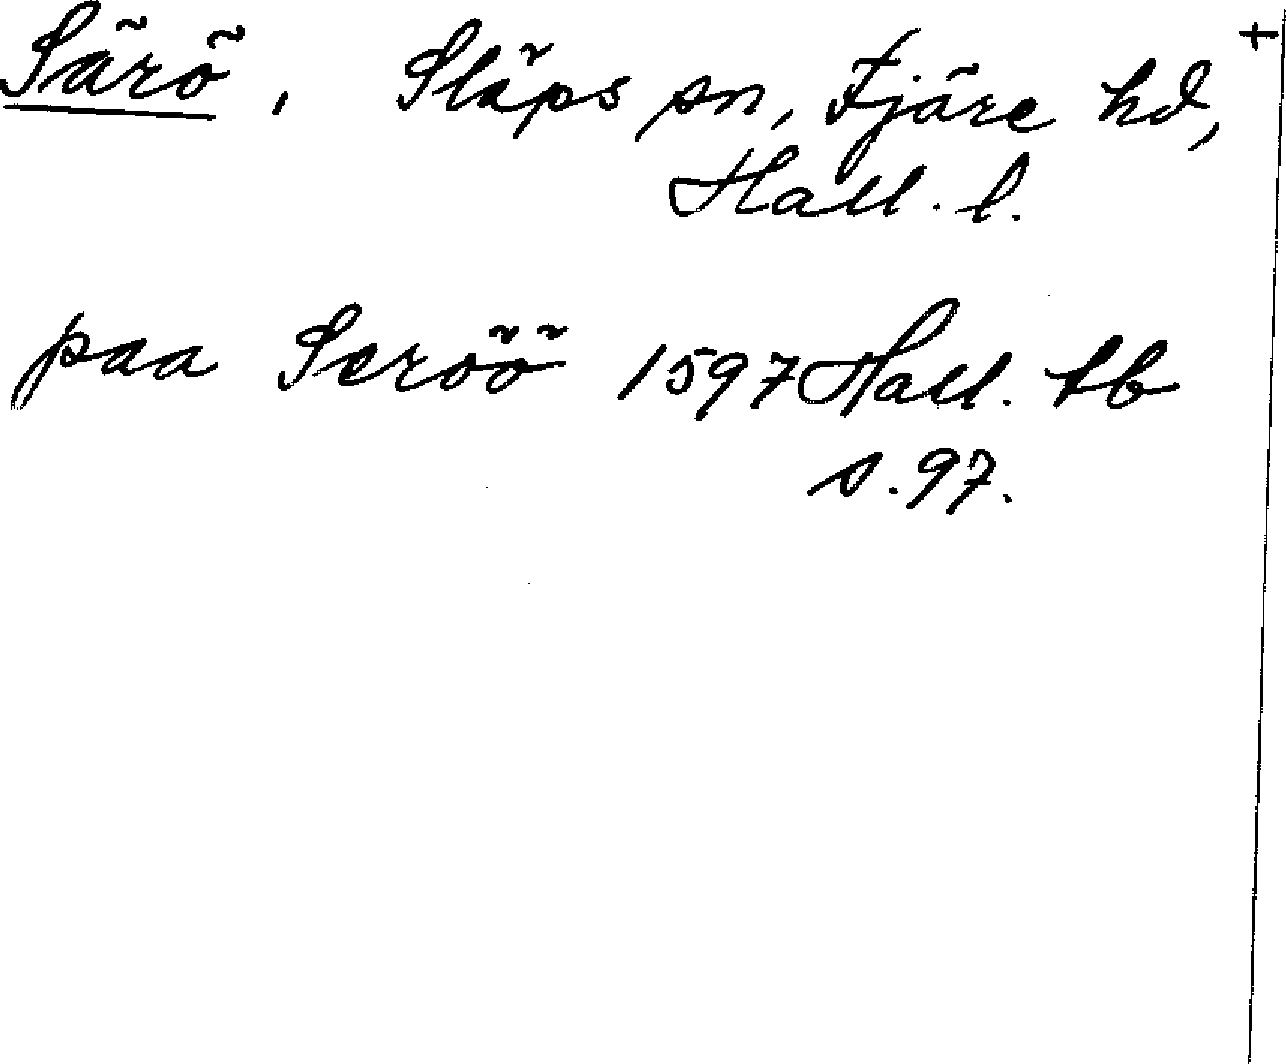 Särö, Släps sn, Fjäre hd, †
Hall. l.
paa Seröö 1597 Hall. tb
s. 97.